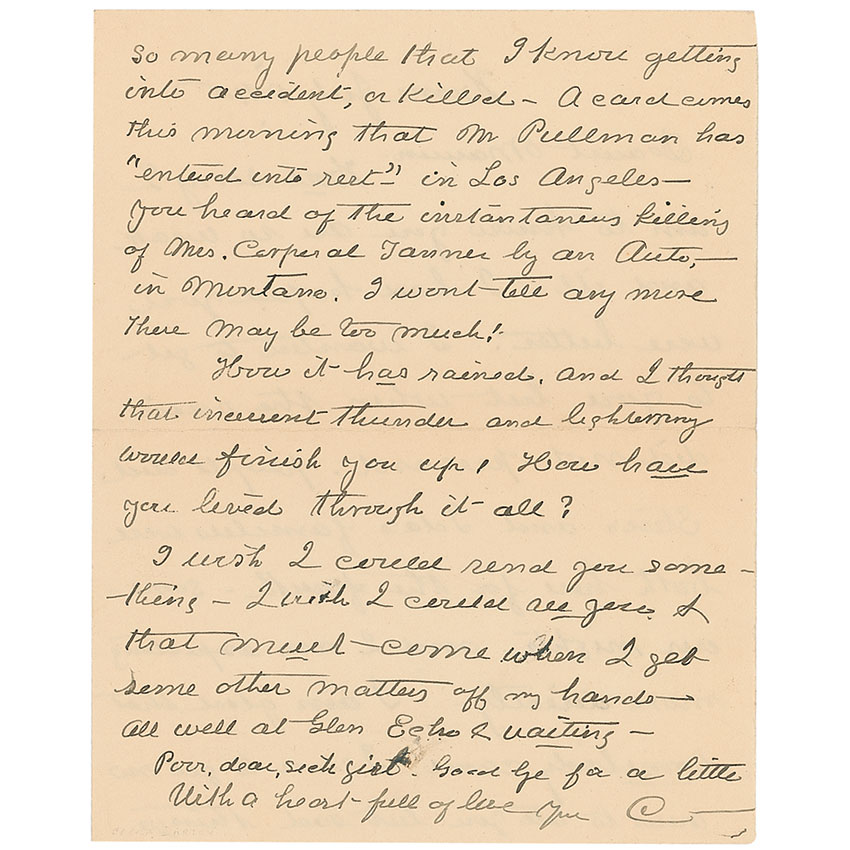 So many people that I know getting
into accident, or killed – A card comes
this morning that Mr Pullman has
"entered into rest" – in Los Angeles –
You heard of the instantaneus killing
of Mrs. Corperal Tanner by an Auto, –
in Montana. I wont tell any more
There may be too much!
How it has rained. And I thought
that incessent thunder and lightening
would finish you up! How have
you lived through it all?
I wish I could send you some –
thing – I wish I could see you &
that must come when I get
some other matters off my hands –
All well at Glen Echo & waiting –
Poor, dear, sick girl. Good bye for a little
With a heart full of love Your C –